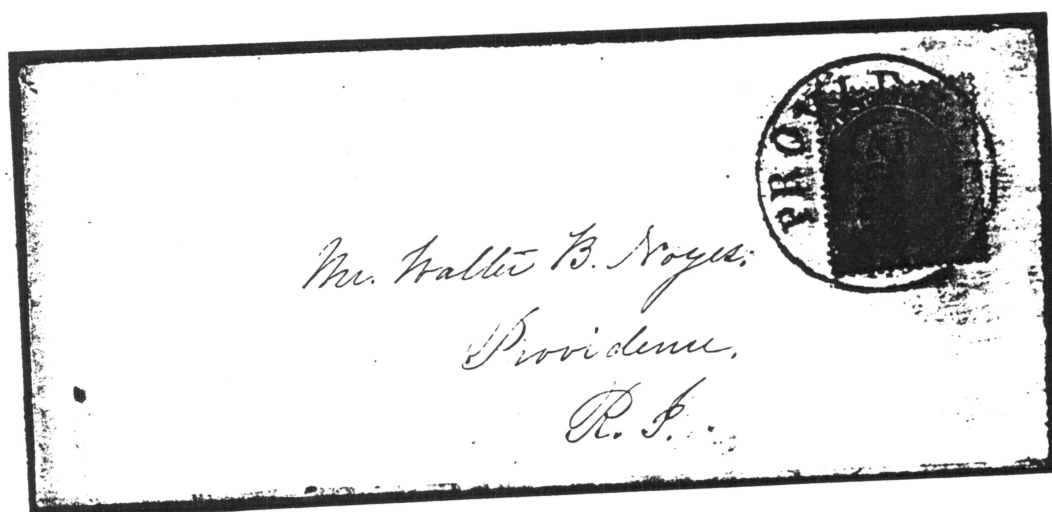 PROVID
Mr. Walter B. Noyes,
Providence,
R. I.